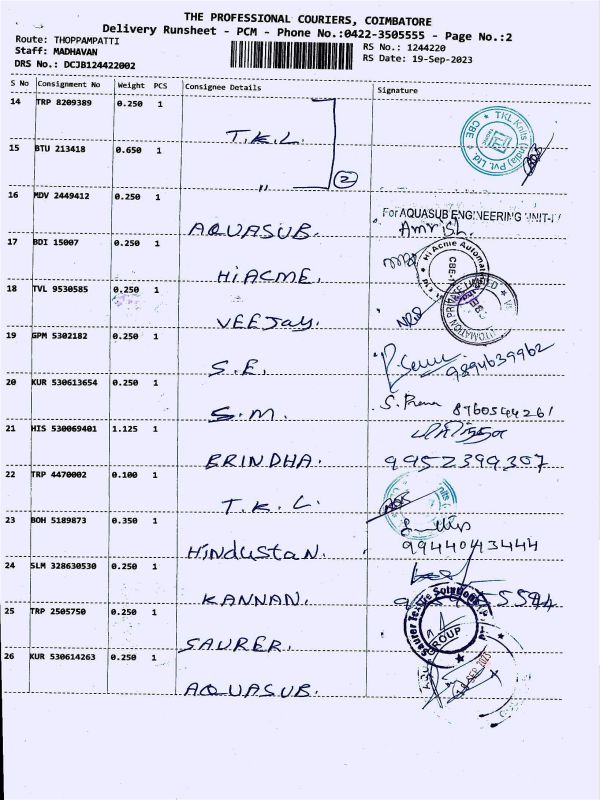 THE PROFESSIONAL COURIERS, COIMBATORE
Delivery Runsheet - PCM - Phone No.:0422-3505555 - Page No.:2
Route: THOPPAMPATTI
RS No.: 1244220
Staff: MADHAVAN
RS Date: 19-Sep-2023
DRS No.: DCJB124422002
S No Consignment No Weight PCS Consignee Details Signature
14 TRP 8209389 0.250 1
T.K.L.
TKL Knits (India) Pvt. Ltd. CBE
15 BTU 213418 0.650 1
" 2
16 MDV 2449412 0.250 1
AQUASUB.
For AQUASUB ENGINEERING UNIT-IV
Amrish.
17 BDI 15007 0.250 1
HiACME.
Hi Acme Automat
18 TVL 9530585 0.250 1
VEEJay.
UTOMATION PRIVATE LIMITED
19 GPM 5302182 0.250 1
S.E.
9894639962
20 KUR 530613654 0.250 1
S.M.
S. Prema 8760544261
21 HIS 530069401 1.125 1
BRINDHA.
9952399307
22 TRP 4470002 0.100 1
T.K.L.
23 BOH 5189873 0.350 1
HinDUStAN.
99440413444
24 SLM 328630530 0.250 1
KANNAN.
5594
25 TRP 2505750 0.250 1
SAURER.
Saurer Textile Solutions
GROUP
26 KUR 530614263 0.250 1
AQUASUB.
SEP 2023